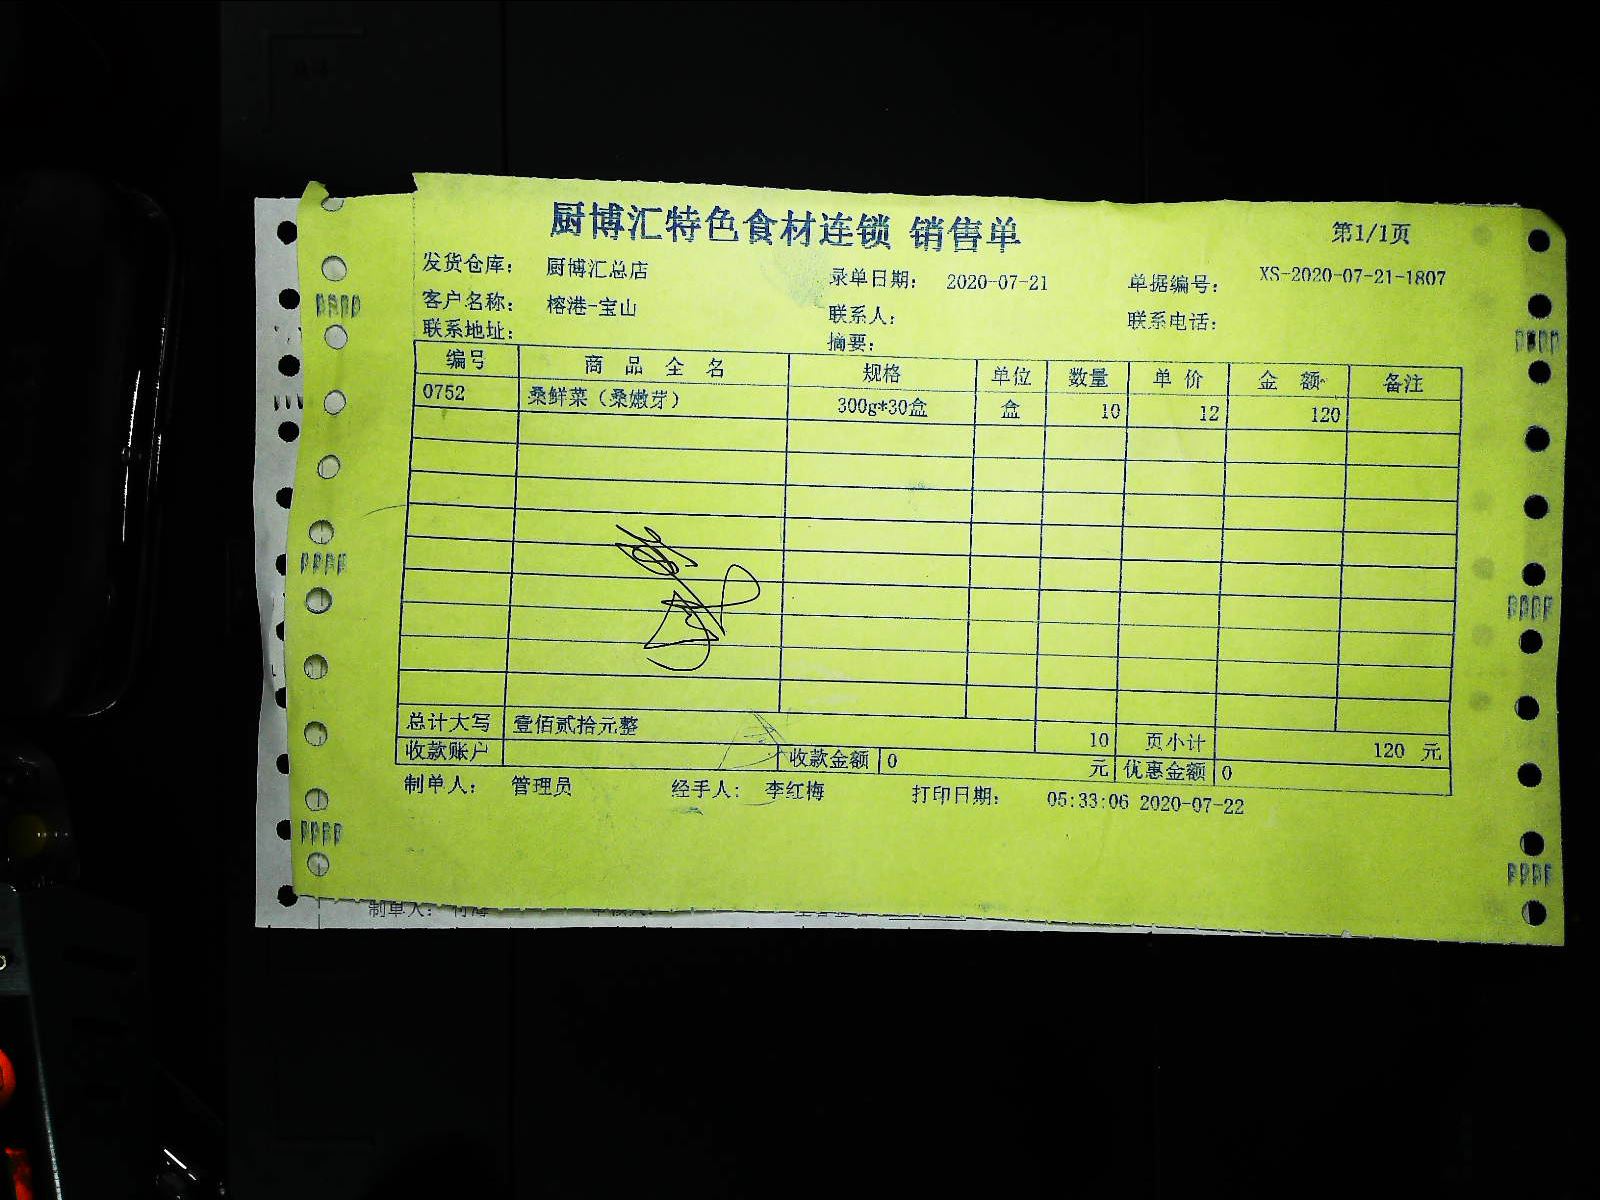 厨博汇特色食材连锁 销售单
第1/1页
发货仓库： 厨博汇总店 录单日期： 2020-07-21 单据编号： XS-2020-07-21-1807
客户名称： 榕港-宝山 联系人： 联系电话：
联系地址： 摘要：
编号 商 品 全 名 规格 单位 数量 单 价 金 额 备注
0752 桑鲜菜（桑嫩芽） 300g*30盒 盒 10 12 120
总计大写 壹佰贰拾元整 10 页小计 120 元
收款账户 收款金额 0 元 优惠金额 0
制单人： 管理员 经手人： 李红梅 打印日期： 05:33:06 2020-07-22
制单人：